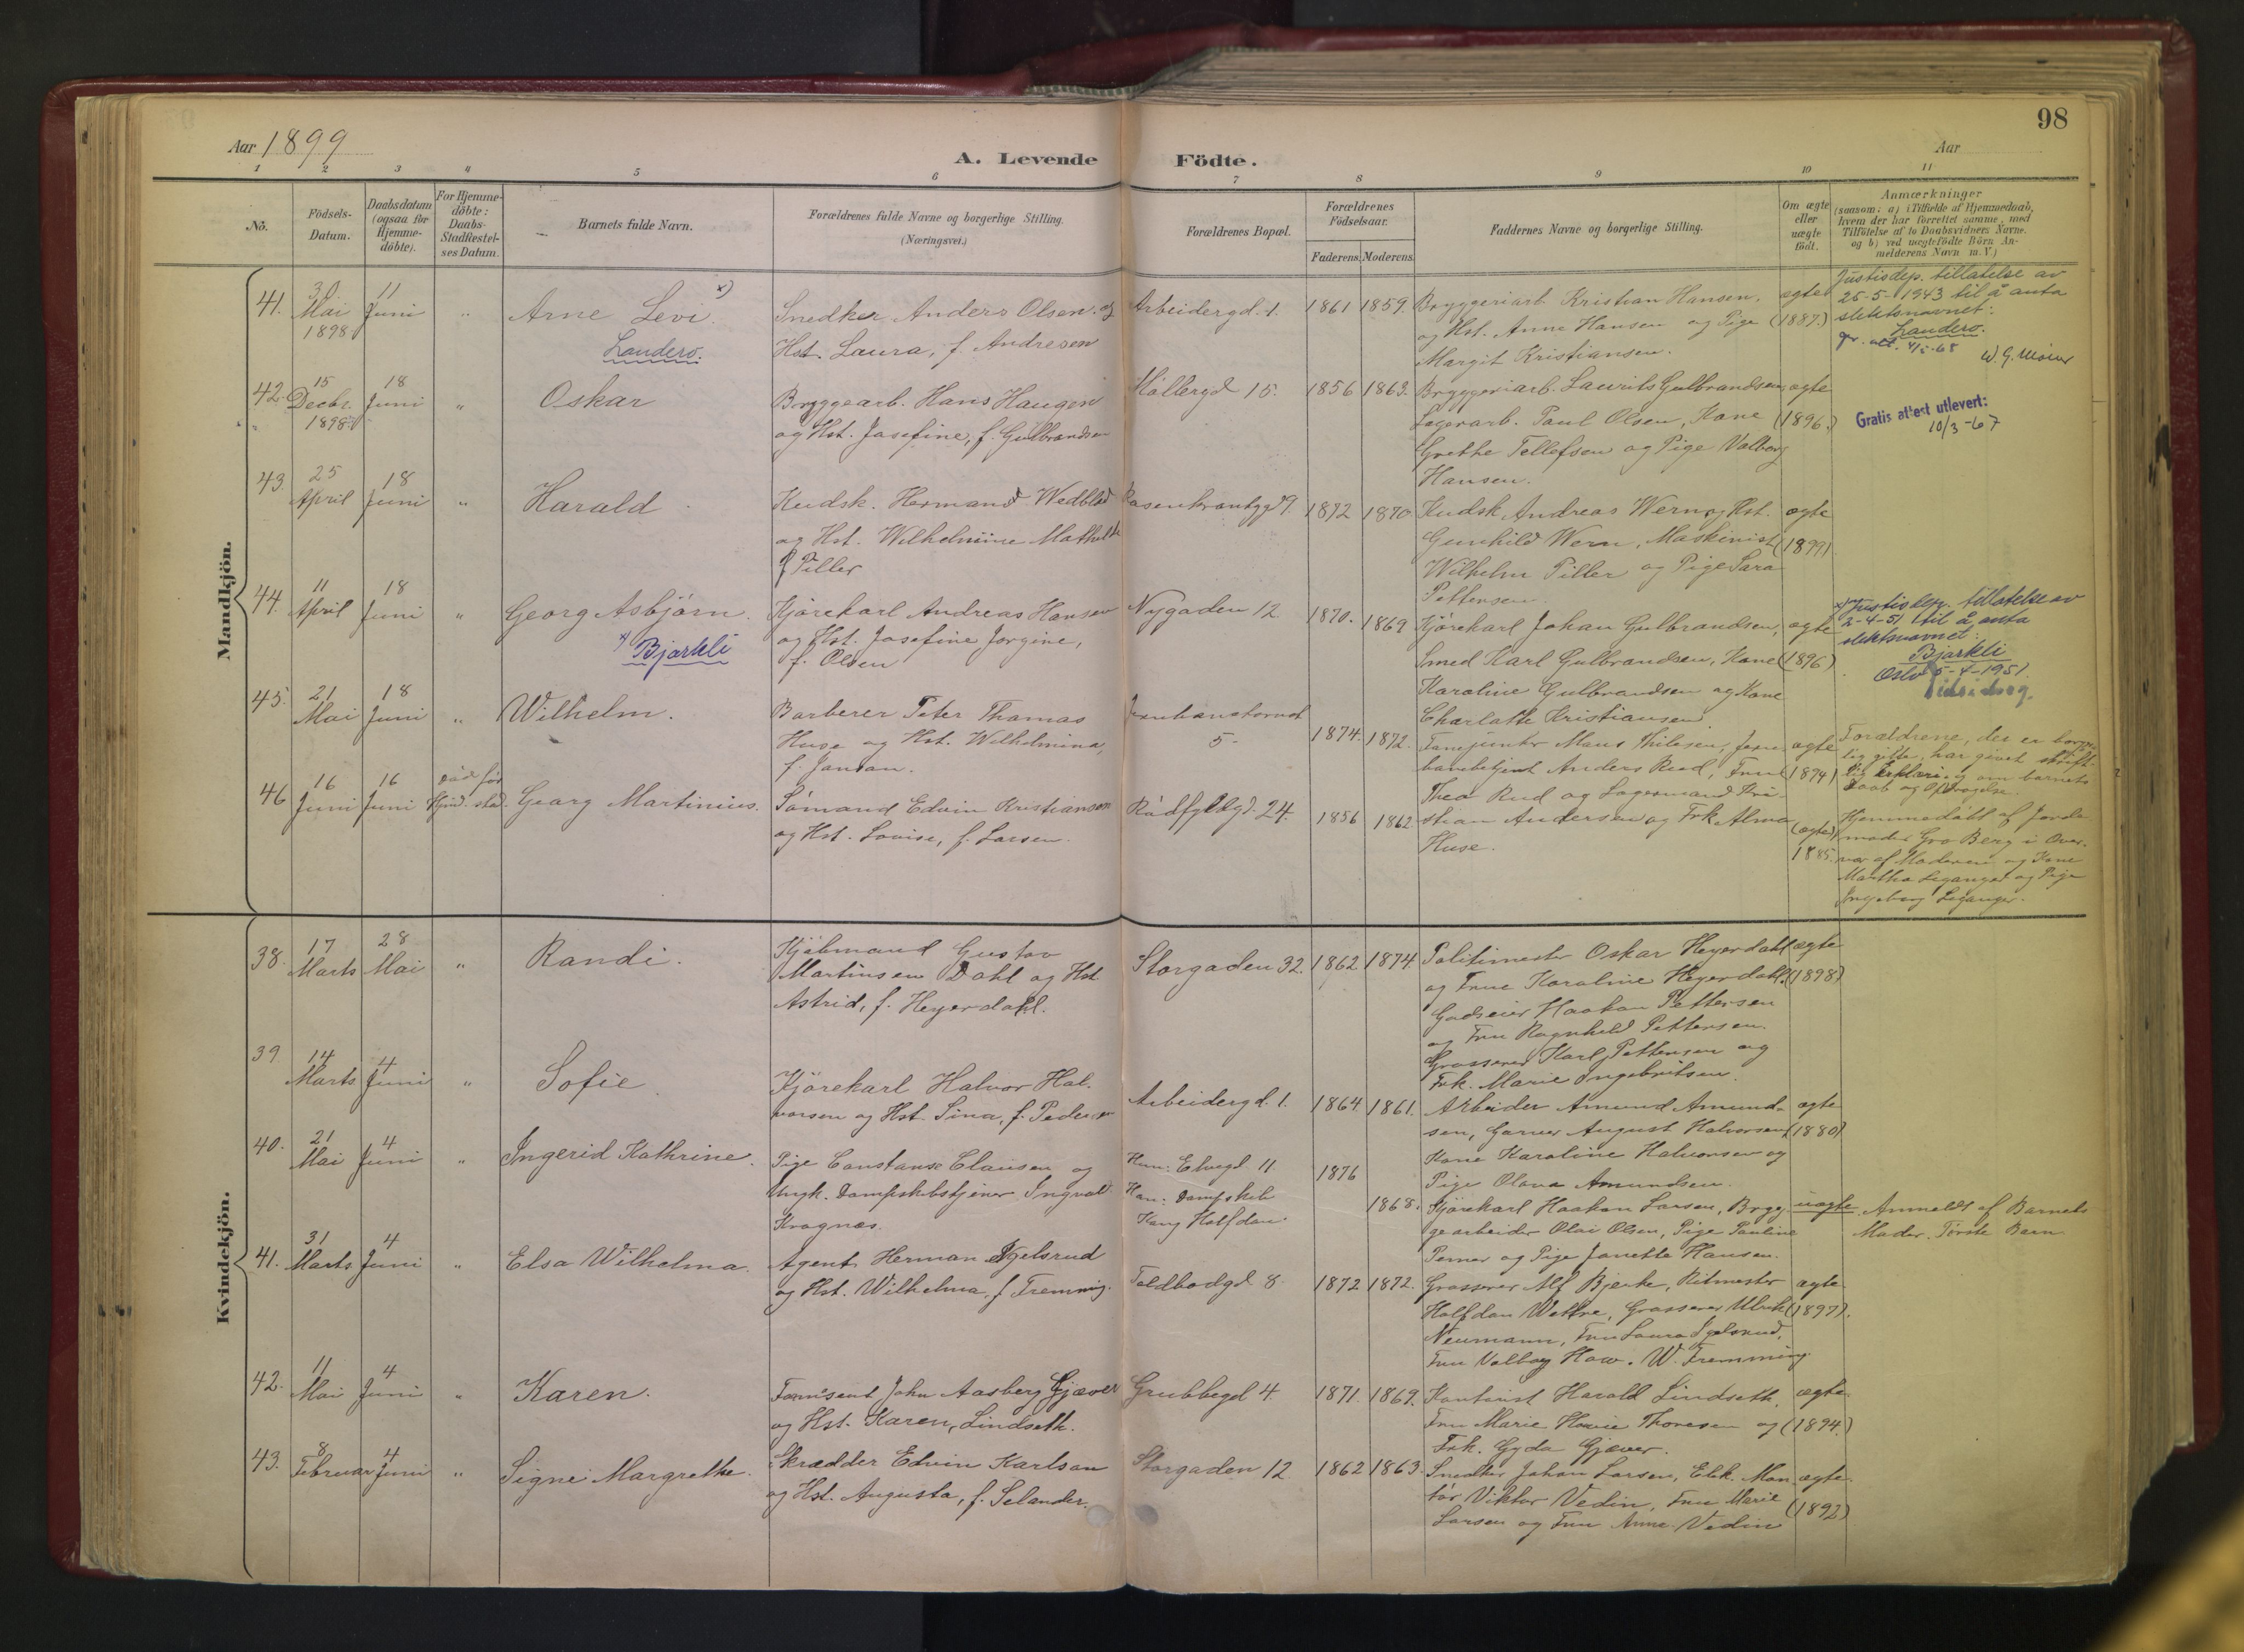 98
Aar 1899
A. Levende Födte.
Aar
1 2 3 4 5 6 7 8 9 10 11
No.
Födsels-
Datum.
Daabsdatum
(ogsaa for
Hjemme-
döbte).
For Hjemme-
döbte:
Daabs-
Stadfestel-
ses Datum.
Barnets fulde Navn.
Forældrenes fulde Navne og borgerlige Stilling.
(Næringsvei.)
Forældrenes Bopæl.
Forældrenes
Födselsaar.
Faderens. Moderens.
Faddernes Navne og borgerlige Stilling.
Om ægte
eller
uægte
födt.
Anmærkninger
(saasom: a) i Tilfælde af Hjemmedaab,
hvem der har forrettet samme, med
Tilföielse af to Daabsvidners Navne.
og b) ved uægtefödte Börn An-
melderens Navn m. V.)
Mandkjön.
41. 30 Mai 1898 11 Juni " Arne Levi. x)
Landero.
Snedker Anders Olsen og
Hst. Laura, f. Andresen
Arbeidergd. 1. 1861 1859.
Bryggeriarb. Kristian Hansen,
og Hst. Anne Hansen og Pige
Margit Kristiansen.
ægte
(1887.)
Justisdep. tillatelse av
25-5-1943 til å anta
slektsnavnet:
Landero.
42. 15 Decbr. 1898 18 Juni " Oskar
Bryggearb. Hans Haugen
og Hst. Josefine, f. Gulbrandsen
Möllergd 15. 1856 1863.
Bryggeriarb. Laurits Gulbrandsen,
Lagerarb. Paul Olsen, Kone
Grethe Tellefsen og Pige Valborg
Hansen.
ægte
(1896.)
Gratis attest utlevert:
10/3-67
43. 25 April 18 Juni " Harald
Kudsk. Hermand Wedblad
og Hst. Wilhelmine Mathilde
f Piller
Rosenkrantzgd 9. 1872 1870.
Kudsk Andreas Wern og Hst.
Gunhild Wern, Maskinist
Wilhelm Piller og Pige Sara
Pettersen
ægte
44. 11 April 18 Juni " Georg Asbjörn.
x Bjørkli
Kjörekarl Andreas Hansen
og Hst. Josefine Jorgine,
f. Olsen
Nygaden 12. 1870. 1869
Kjörekarl Johan Gulbrandsen,
Smed Karl Gulbrandsen, Kone
Karoline Gulbrandsen og Kone
Charlotte Kristiansen.
ægte
(1896)
x) Justisdep. tillatelse av
2-4-51 til å anta
slektsnavnet:
Bjørkli
Oslo 5-4-1951.
45. 21 Mai 18 Juni " Wilhelm.
Barberer Peter Thomas
Huse og Hst. Wilhelmina,
f. Janson.
Jernbanetorvet
5- 1874. 1872.
banebetjent Anders Rud, Frue
Thea Rud og Lagermand Kri-
stian Andersen og Frk Alma
Huse.
ægte
(1894)
Forældrene, der er borger-
lig gifte, har givet skrift-
lig Erklæring om barnets
Daab og Opdragelse.
46 16 Juni 16 Juni Död för
Hjmd. stad. Georg Martinius.
Sömand Edvin Kristiansen
og Hst. Lovise, f. Larsen.
Rådfylkegd. 24. 1856 1862.
(ægte)
1885.
Hjemmedöbt af Jorde-
moder Gro Berg i Over-
vær af Moderen og Kone
Martha Leganger og Pige
Ingeborg Leganger.
Kvindekjön.
38. 17 Marts 28 Mai " Randi.
Kjöbmand Gustav
Martinsen Dahl og Hst
Astrid, f. Heyerdahl.
Storgaden 32. 1862 1874.
Politimester Oskar Heyerdahl
og Frue Karoline Heyerdahl.
Gadeeier Haakon Pettersen
og Frue Ragnhild Pettersen.
Grosserer Karl Pettersen og
Frk. Marie Ingebritsen.
ægte
(1898)
39 14 Marts 4 Juni " Sofie
Kjörekarl Halvor Hal-
vorsen og Hst. Sina, f. Pedersen
Arbeidergd. 1. 1864 1861.
Arbeider Amund Amund-
sen, Garver August Halvorsen,
Kone Karoline Halvorsen og
Pige Olava Amundsen.
ægte
(1880)
40. 21 Mai 4 Juni " Ingerid Kathrine.
Pige Constanse Clausen og
Ungk. Dampskibstjener Ingvald
Kragnæs.
Hun: Elvegd. 11
Han: Dampskib
Kong Halfdan. 1876 1868.
Kjörekarl Haakon Larsen, Bryg-
gearbeider Olai Olsen, Pige Pauline
Perner og Pige Janette Hansen.
uægte
Anmeldt af Barnets
Moder. Förste Barn
41. 31 Marts 4 Juni " Elsa Wilhelma.
Agent Herman Igelsrud
og Hst. Wilhelma, f Fremming.
Toldbodgd. 8. 1872 1872.
Grosserer Alf Bjerke, Ritmester
Halfdan Wettre, Grosserer Ulrik
Neumann, Frue Laura Igelsrud,
Frue Valborg How. W. Fremming.
ægte
(1897).
42. 11 Mai 4 Juni " Karen.
John Aasberg Gjæver
og Hst. Karen, Lindseth.
Grubbegd 4. 1871. 1869.
Kontorist Harald Lindseth,
Frue Marie Thoresen og
Frk. Gyda Gjæver.
ægte.
(1894.)
43. 8 Februar 4 Juni " Signe Margrethe.
Skrædder Edvin Karlson
og Hst. Augusta, f. Selander.
Storgaden 12 1862 1863.
Snedker Johan Larsen, Elek. Mon-
tör Viktor Vedin, Frue Marie
Larsen og Frue Anne Vedin
ægte.
(1892)